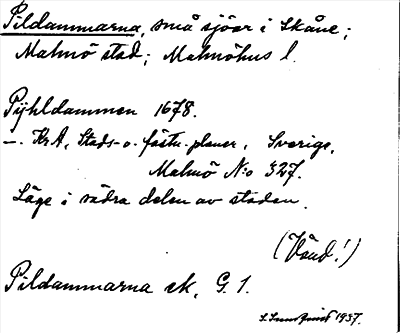 Pildammarna, små sjöar i Skåne;
Malmö stad; Malmöhus l.
Pÿhldammen 1678.
–. KrA, Stads- o. fästn. planer, Sverige,
Malmö N:o 327.
Läge i södra delen av staden.
(Vänd!)
Pildammarna ek. G. 1.
1937.